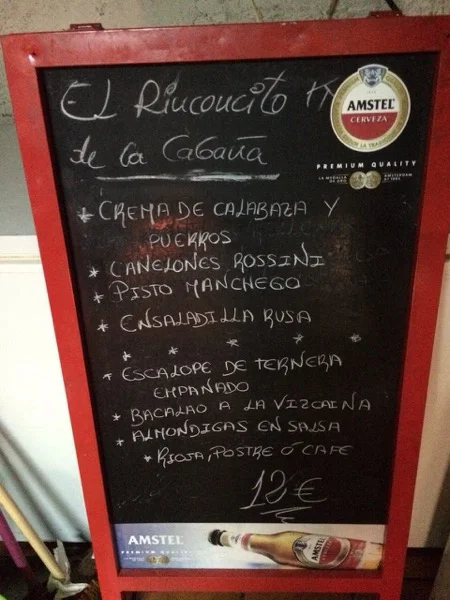 El Rinconcito
de la Cabaña
AMSTEL
CERVEZA
PREMIUM QUALITY
* CREMA DE CALABAZA Y
PUERROS
* CANELONES ROSSINI
* PISTO MANCHEGO
* ENSALADILLA RUSA
* * * *
* ESCALOPE DE TERNERA
EMPANADO
* BACALAO A LA VIZCAINA
* ALMONDIGAS EN SALSA
* RIOJA, POSTRE Ó CAFE
12 €
AMSTEL
PREMIUM QUALITY
AMSTEL